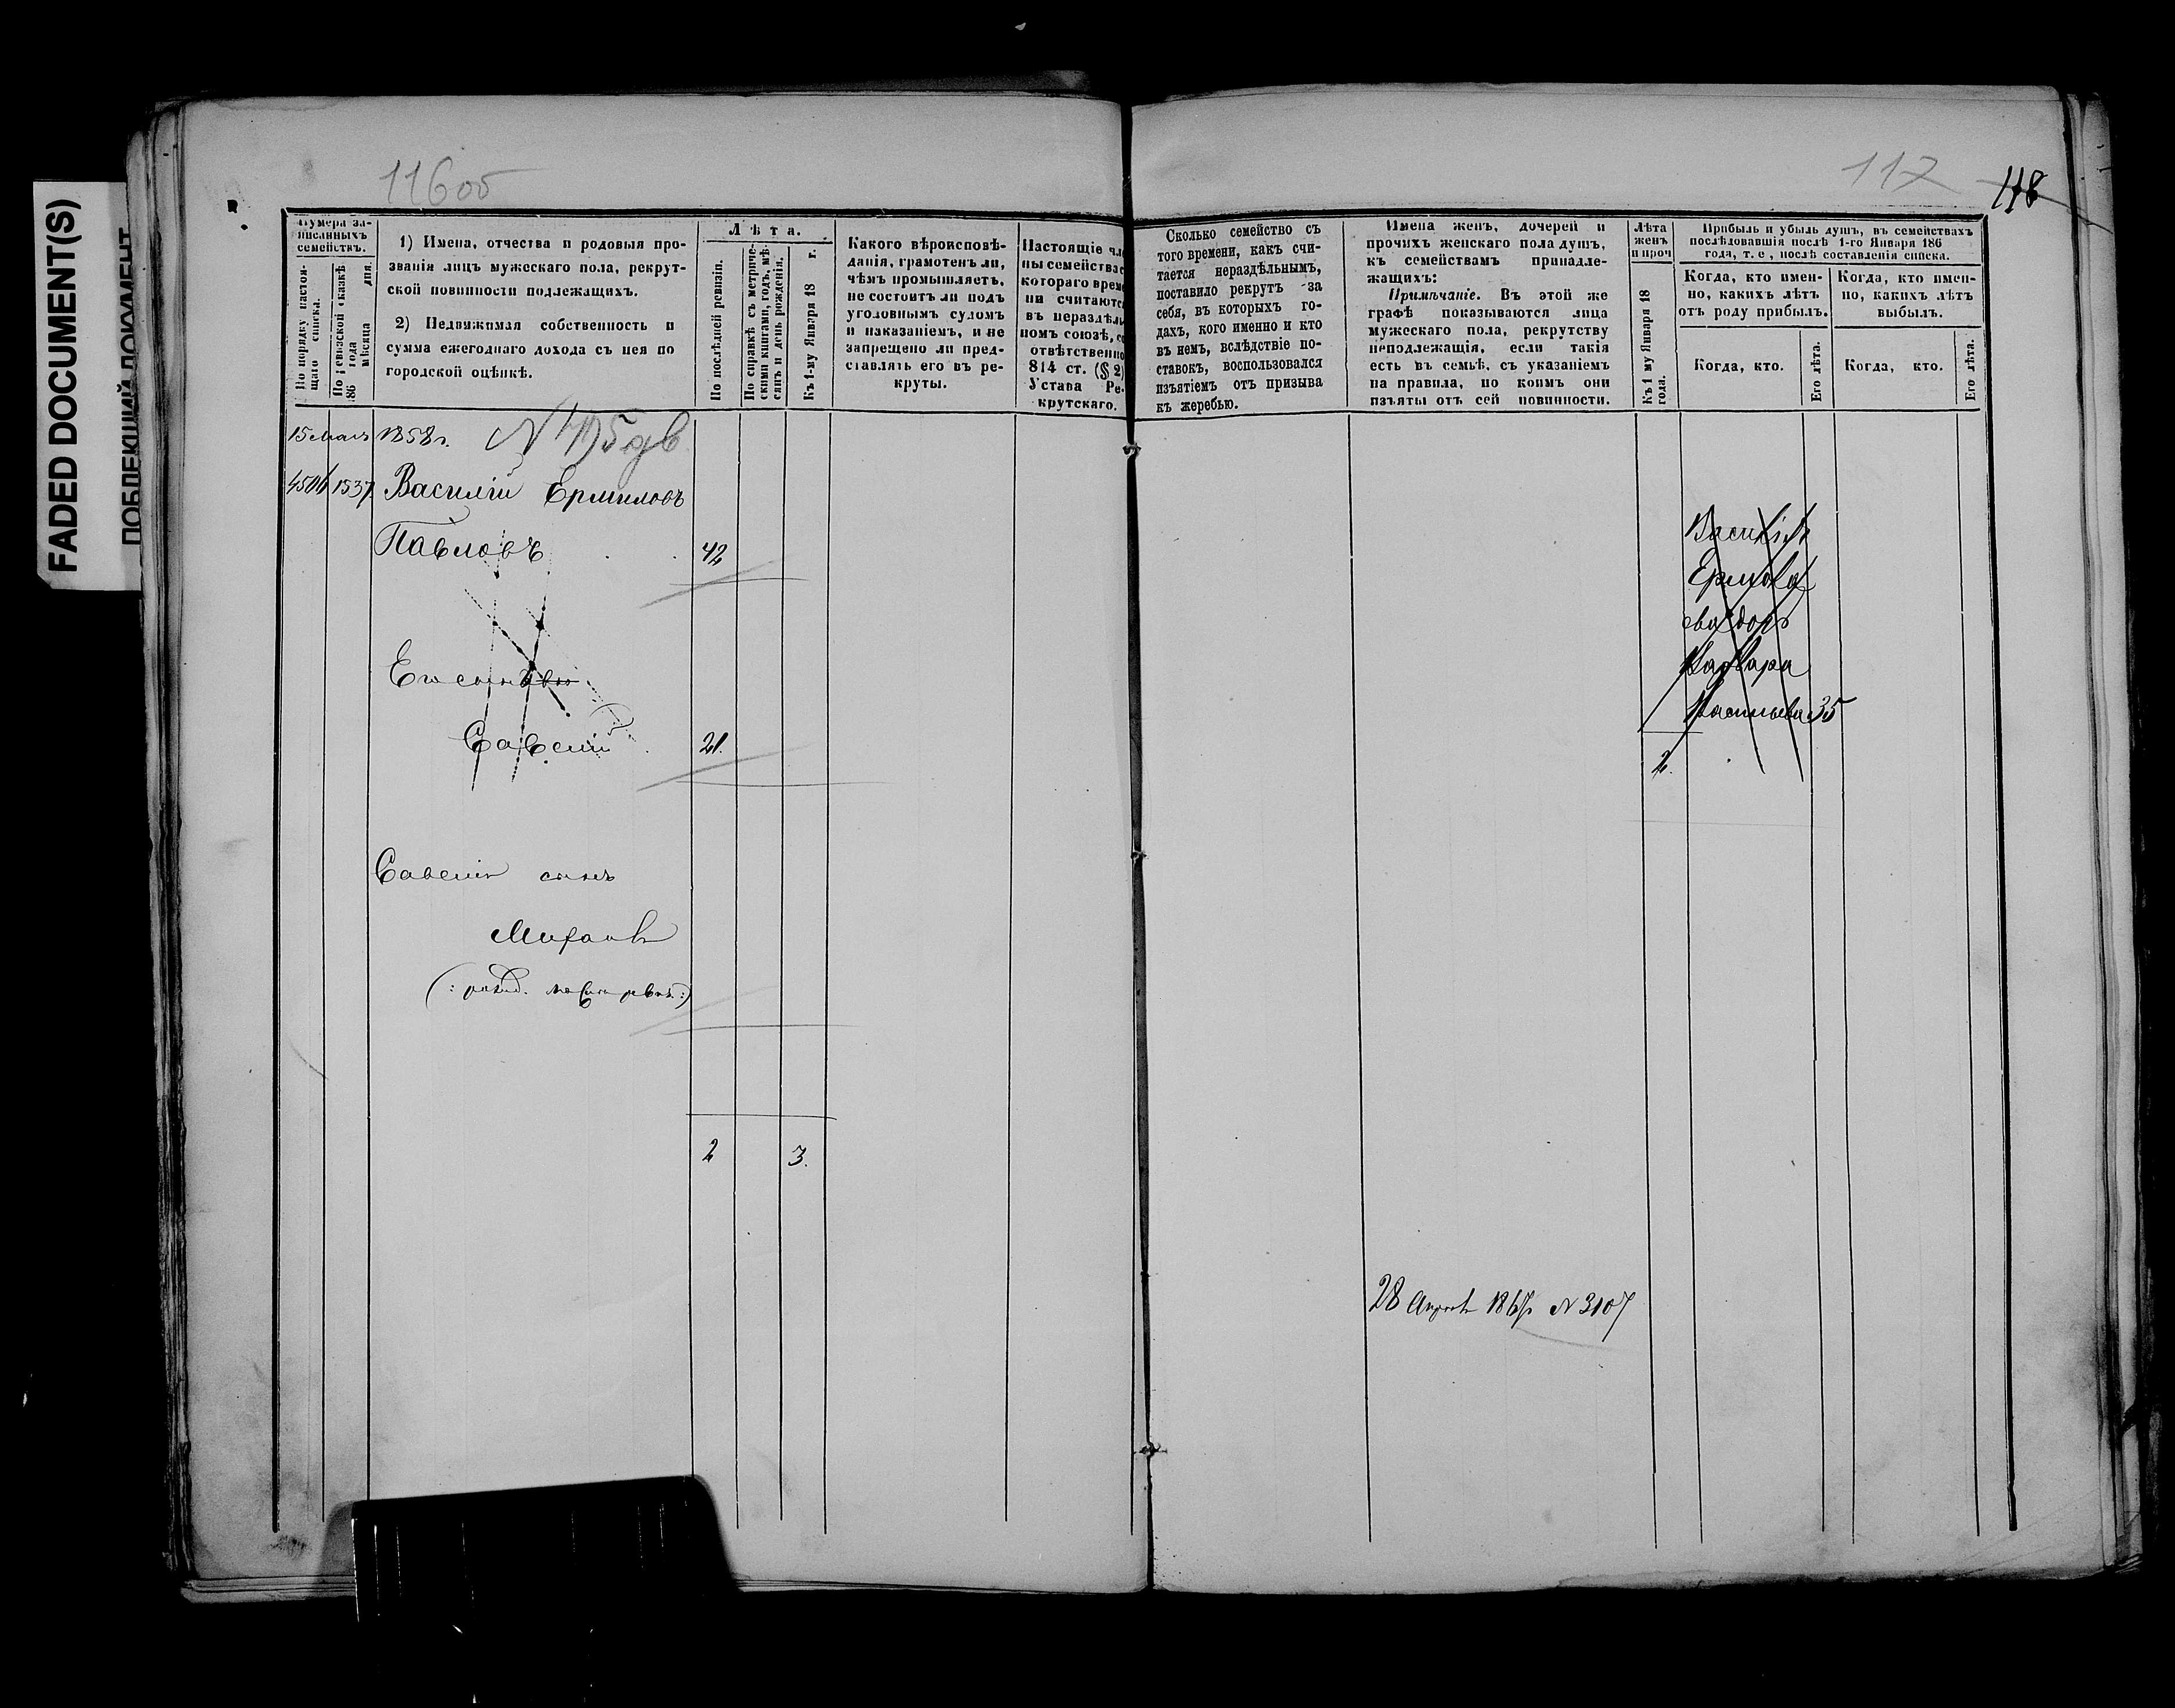 FADED DOCUMENT(S)
ПОБЛЕКШИЙ ДОКУМЕНТ
116об
117
118
Нумера за-
писанныхъ
семействъ.
По порядку настоя-
щаго списка.
По ревизской сказкѣ
186 года
мѣсяца дня.
1) Имена, отчества и родовыя про-
званія лицъ мужескаго пола, рекрут-
ской повинности подлежащихъ.
2) Недвижимая собственность и
сумма ежегоднаго дохода съ нея по
городской оцѣнкѣ.
Лѣта.
По послѣдней ревизіи.
По справкѣ съ метриче-
скими книгами, годъ, мѣ-
сяцъ и день рожденія.
Къ 1-му Января 18 г.
Какого вѣроисповѣ-
данія, грамотенъ ли,
чѣмъ промышляетъ,
не состоитъ ли подъ
уголовнымъ судомъ
и наказаніемъ, и не
запрещено ли пред-
ставлять его въ ре-
круты.
Настоящіе чле
ны семейства с
котораго време
ни считаютс
въ нераздѣль
номъ союзѣ, с
отвѣтственно
814 ст. (§ 2)
Устава Ре-
крутскаго.
Сколько семейство съ
того времени, какъ счи-
тается нераздѣльнымъ,
поставило рекрутъ за
себя, въ которыхъ го-
дахъ, кого именно и кто
въ немъ, вслѣдствіе по-
ставокъ, воспользовался
изъятіемъ отъ призыва
къ жеребью.
Имена женъ, дочерей и
прочихъ женскаго пола душъ,
къ семействамъ принадле-
жащихъ:
Примѣчаніе. Въ этой же
графѣ показываются лица
мужескаго пола, рекрутству
неподлежащія, если такія
есть въ семьѣ, съ указаніемъ
на правила, по коимъ они
изъяты отъ сей повинности.
Лѣта
женъ
и проч
Къ 1 му Января 18
года.
Прибыль и убыль душъ, въ семействахъ
послѣдовавшія послѣ 1-го Января 186
года, т. е., послѣ составленія списка.
Когда, кто имен-
но, какихъ лѣтъ
отъ роду прибылъ.
Когда, кто имен-
но, какихъ лѣтъ
выбылъ.
Когда, кто.
Его лѣта.
Когда, кто.
Его лѣта.
15 Мая 1858 г.
1537 Василій Ермиловъ
Павловъ 42
Его сынъ
Савелій 21.
Савелія сынъ
Михаилъ
2 3.
Василія
Ермила
Варвара
Васильева 35
2.
28 Апрѣля 1867 г. N 3107